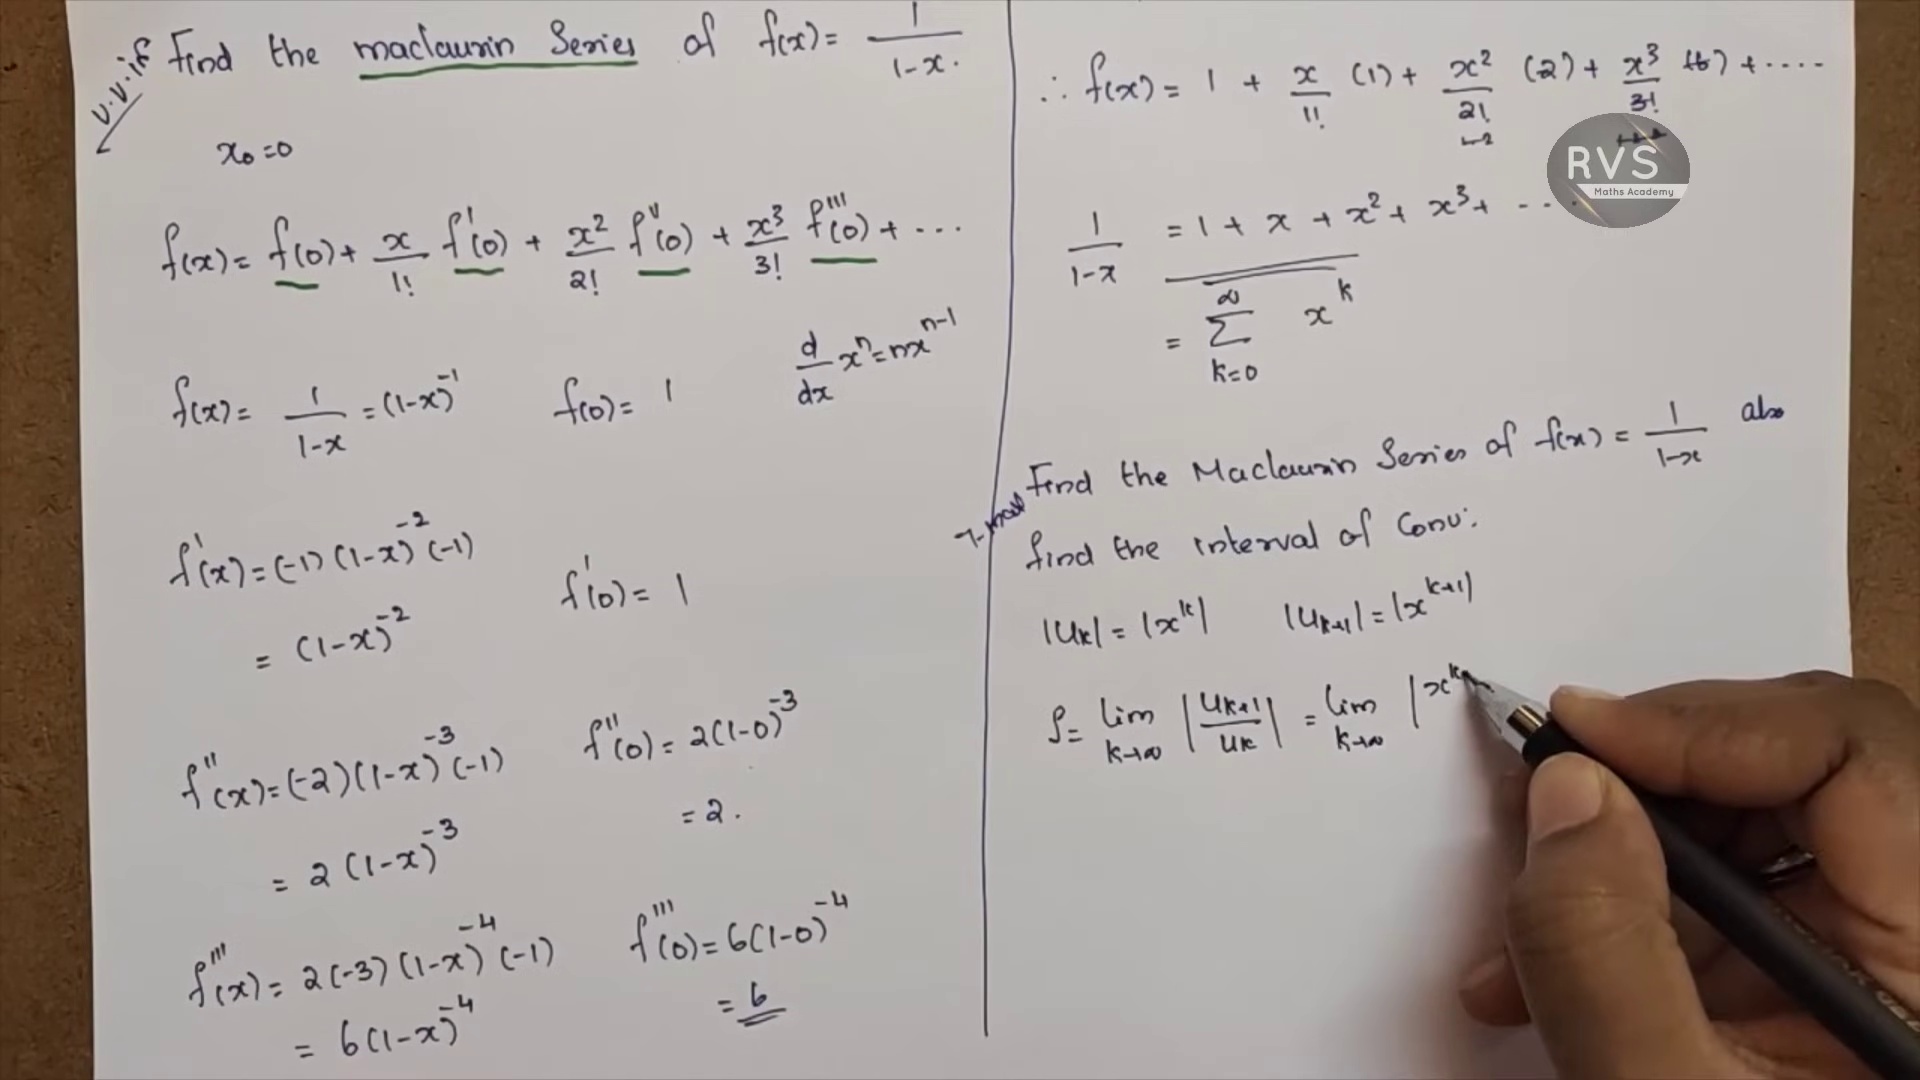 v.v.if
Find the maclaurin Series of f(x) = 1/(1-x).
x₀ = 0
f(x) = f(0) + x/1! f'(0) + x²/2! f''(0) + x³/3! f'''(0) + ...
d/dx xⁿ = nxⁿ⁻¹
f(x) = 1/(1-x) = (1-x)⁻¹ f(0) = 1
f'(x) = (-1)(1-x)⁻²(-1)
= (1-x)⁻² f'(0) = 1
f''(x) = (-2)(1-x)⁻³(-1) f''(0) = 2(1-0)⁻³
= 2(1-x)⁻³ = 2.
f'''(x) = 2(-3)(1-x)⁻⁴(-1) f'''(0) = 6(1-0)⁻⁴
= 6(1-x)⁻⁴ = 6
∴ f(x) = 1 + x/1! (1) + x²/2! (2) + x³/3! (6) + ....
RVS
Maths Academy
1/(1-x) = 1 + x + x² + x³ + ...
= ∞ Σ k=0 xᵏ
Find the Maclaurin Series of f(x) = 1/(1-x) also
find the interval of Conv:
|uₖ| = |xᵏ| |uₖ₊₁| = |xᵏ⁺¹|
ρ = lim k→∞ |uₖ₊₁/uₖ| = lim k→∞ |xᵏ